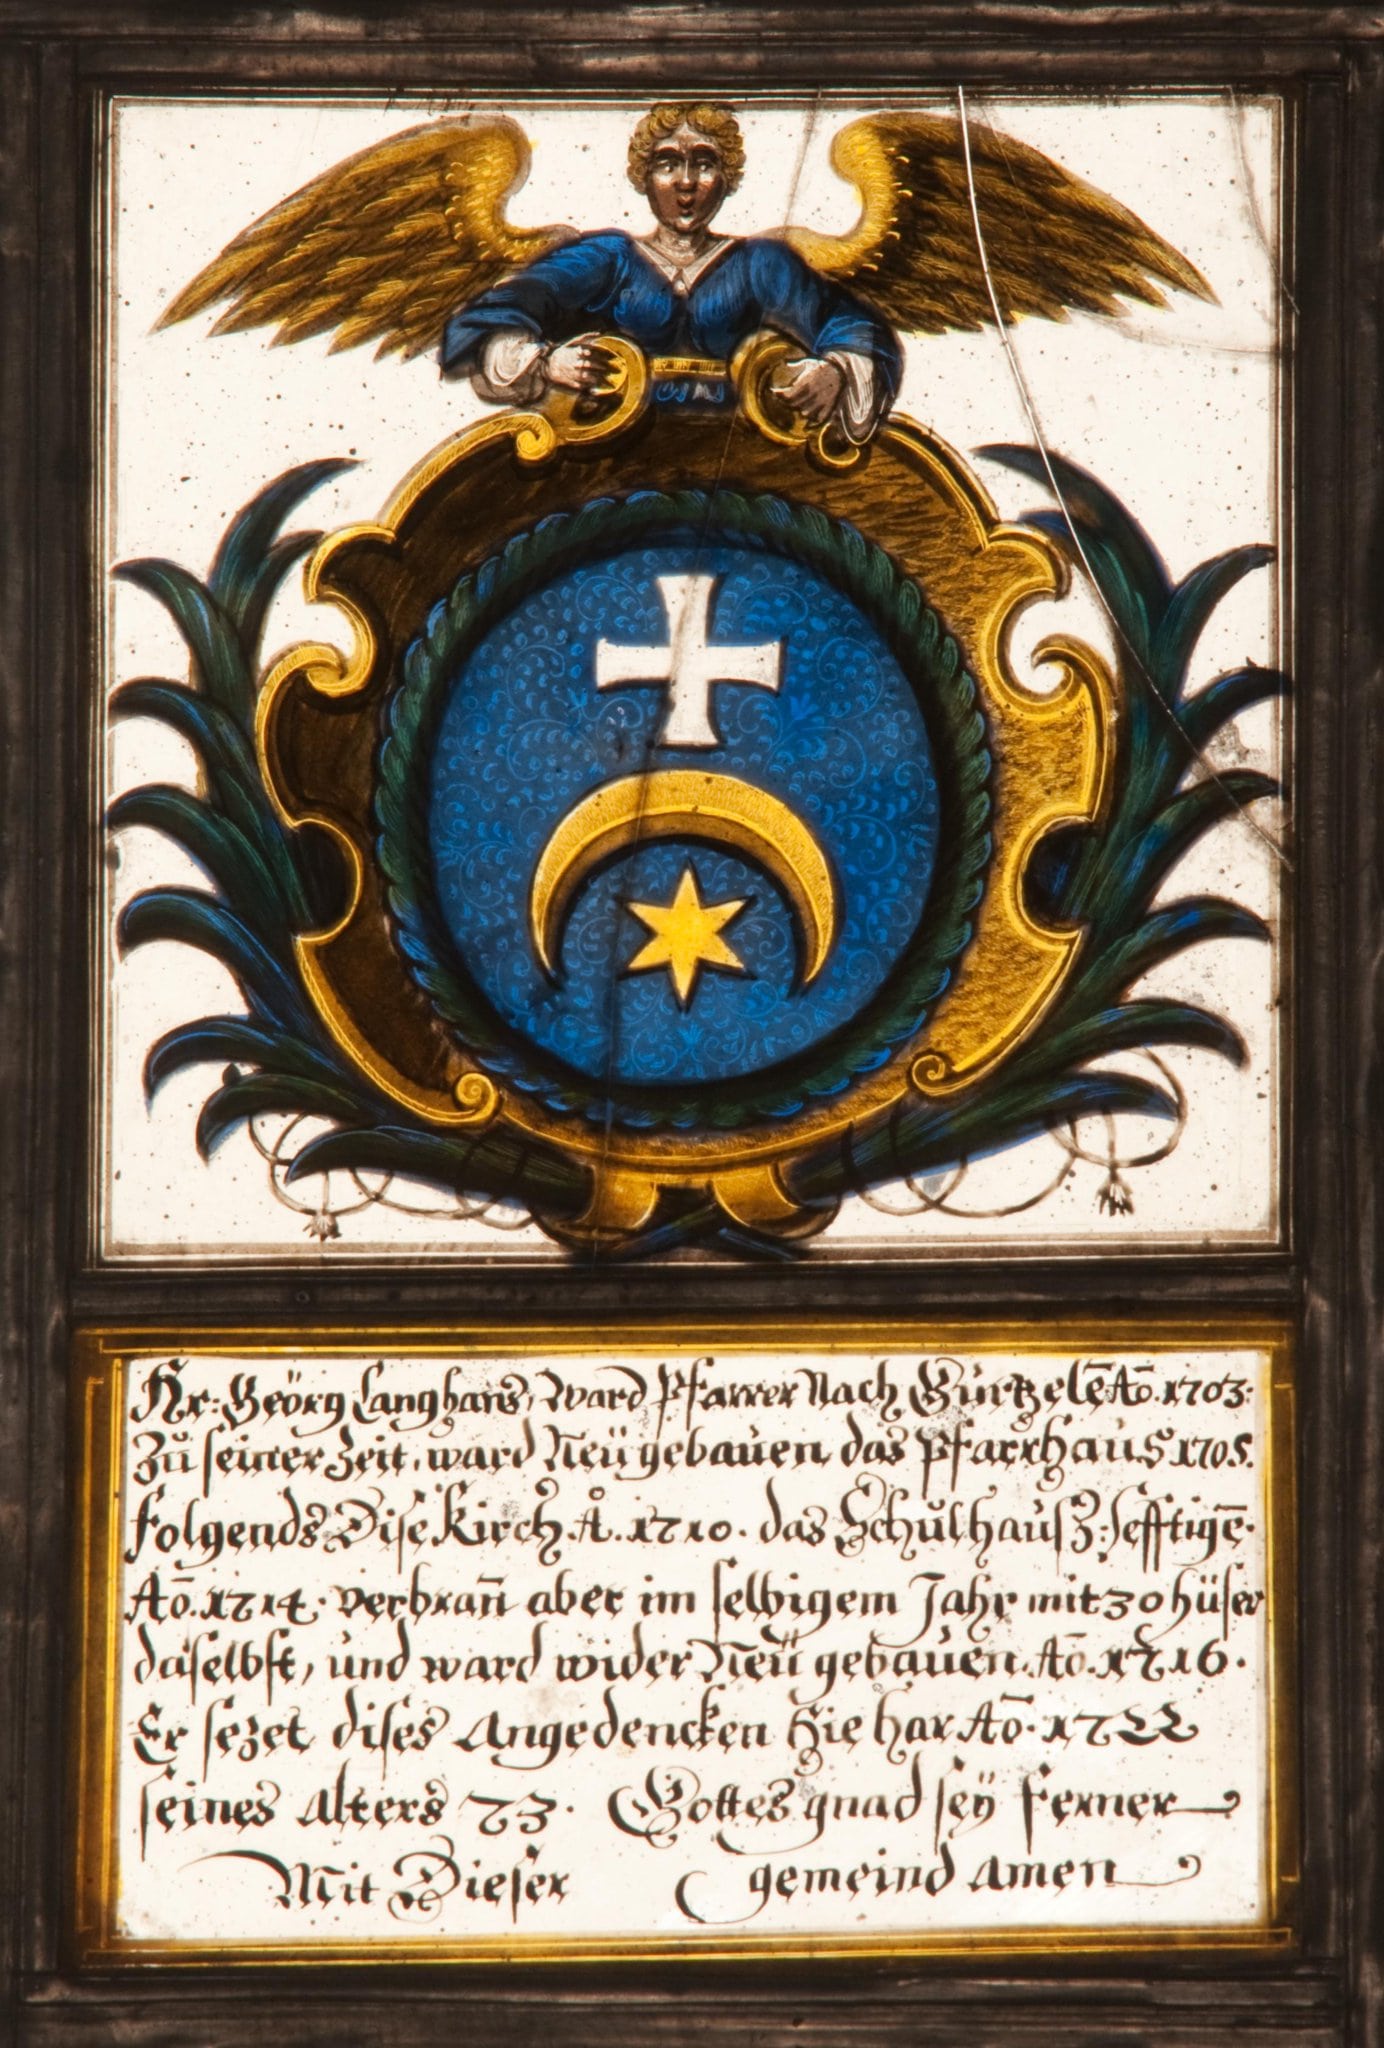 Hr: Geörg Langhans, Ward Pfarrer Nach Gürtzelē Aō. 1703.
Zů seiner Zeit, ward Neü gebaůen das Pfarrhaůs 1705.
Folgends Dise Kirch. A̍. 1710. das Schůlhaůsz: sefftigē.
Aō. 1714. verbran̄ aber im selbigem Jahr mit 30 hüser
daselbst, ůnd ward wider Neü gebaůen. Aō. 1716.
Er sezet dises Angedencken Hie har Aō. 1722
seines Alters 73. Gottes gnad seÿ Ferner
Mit Dieser gemeind Amen